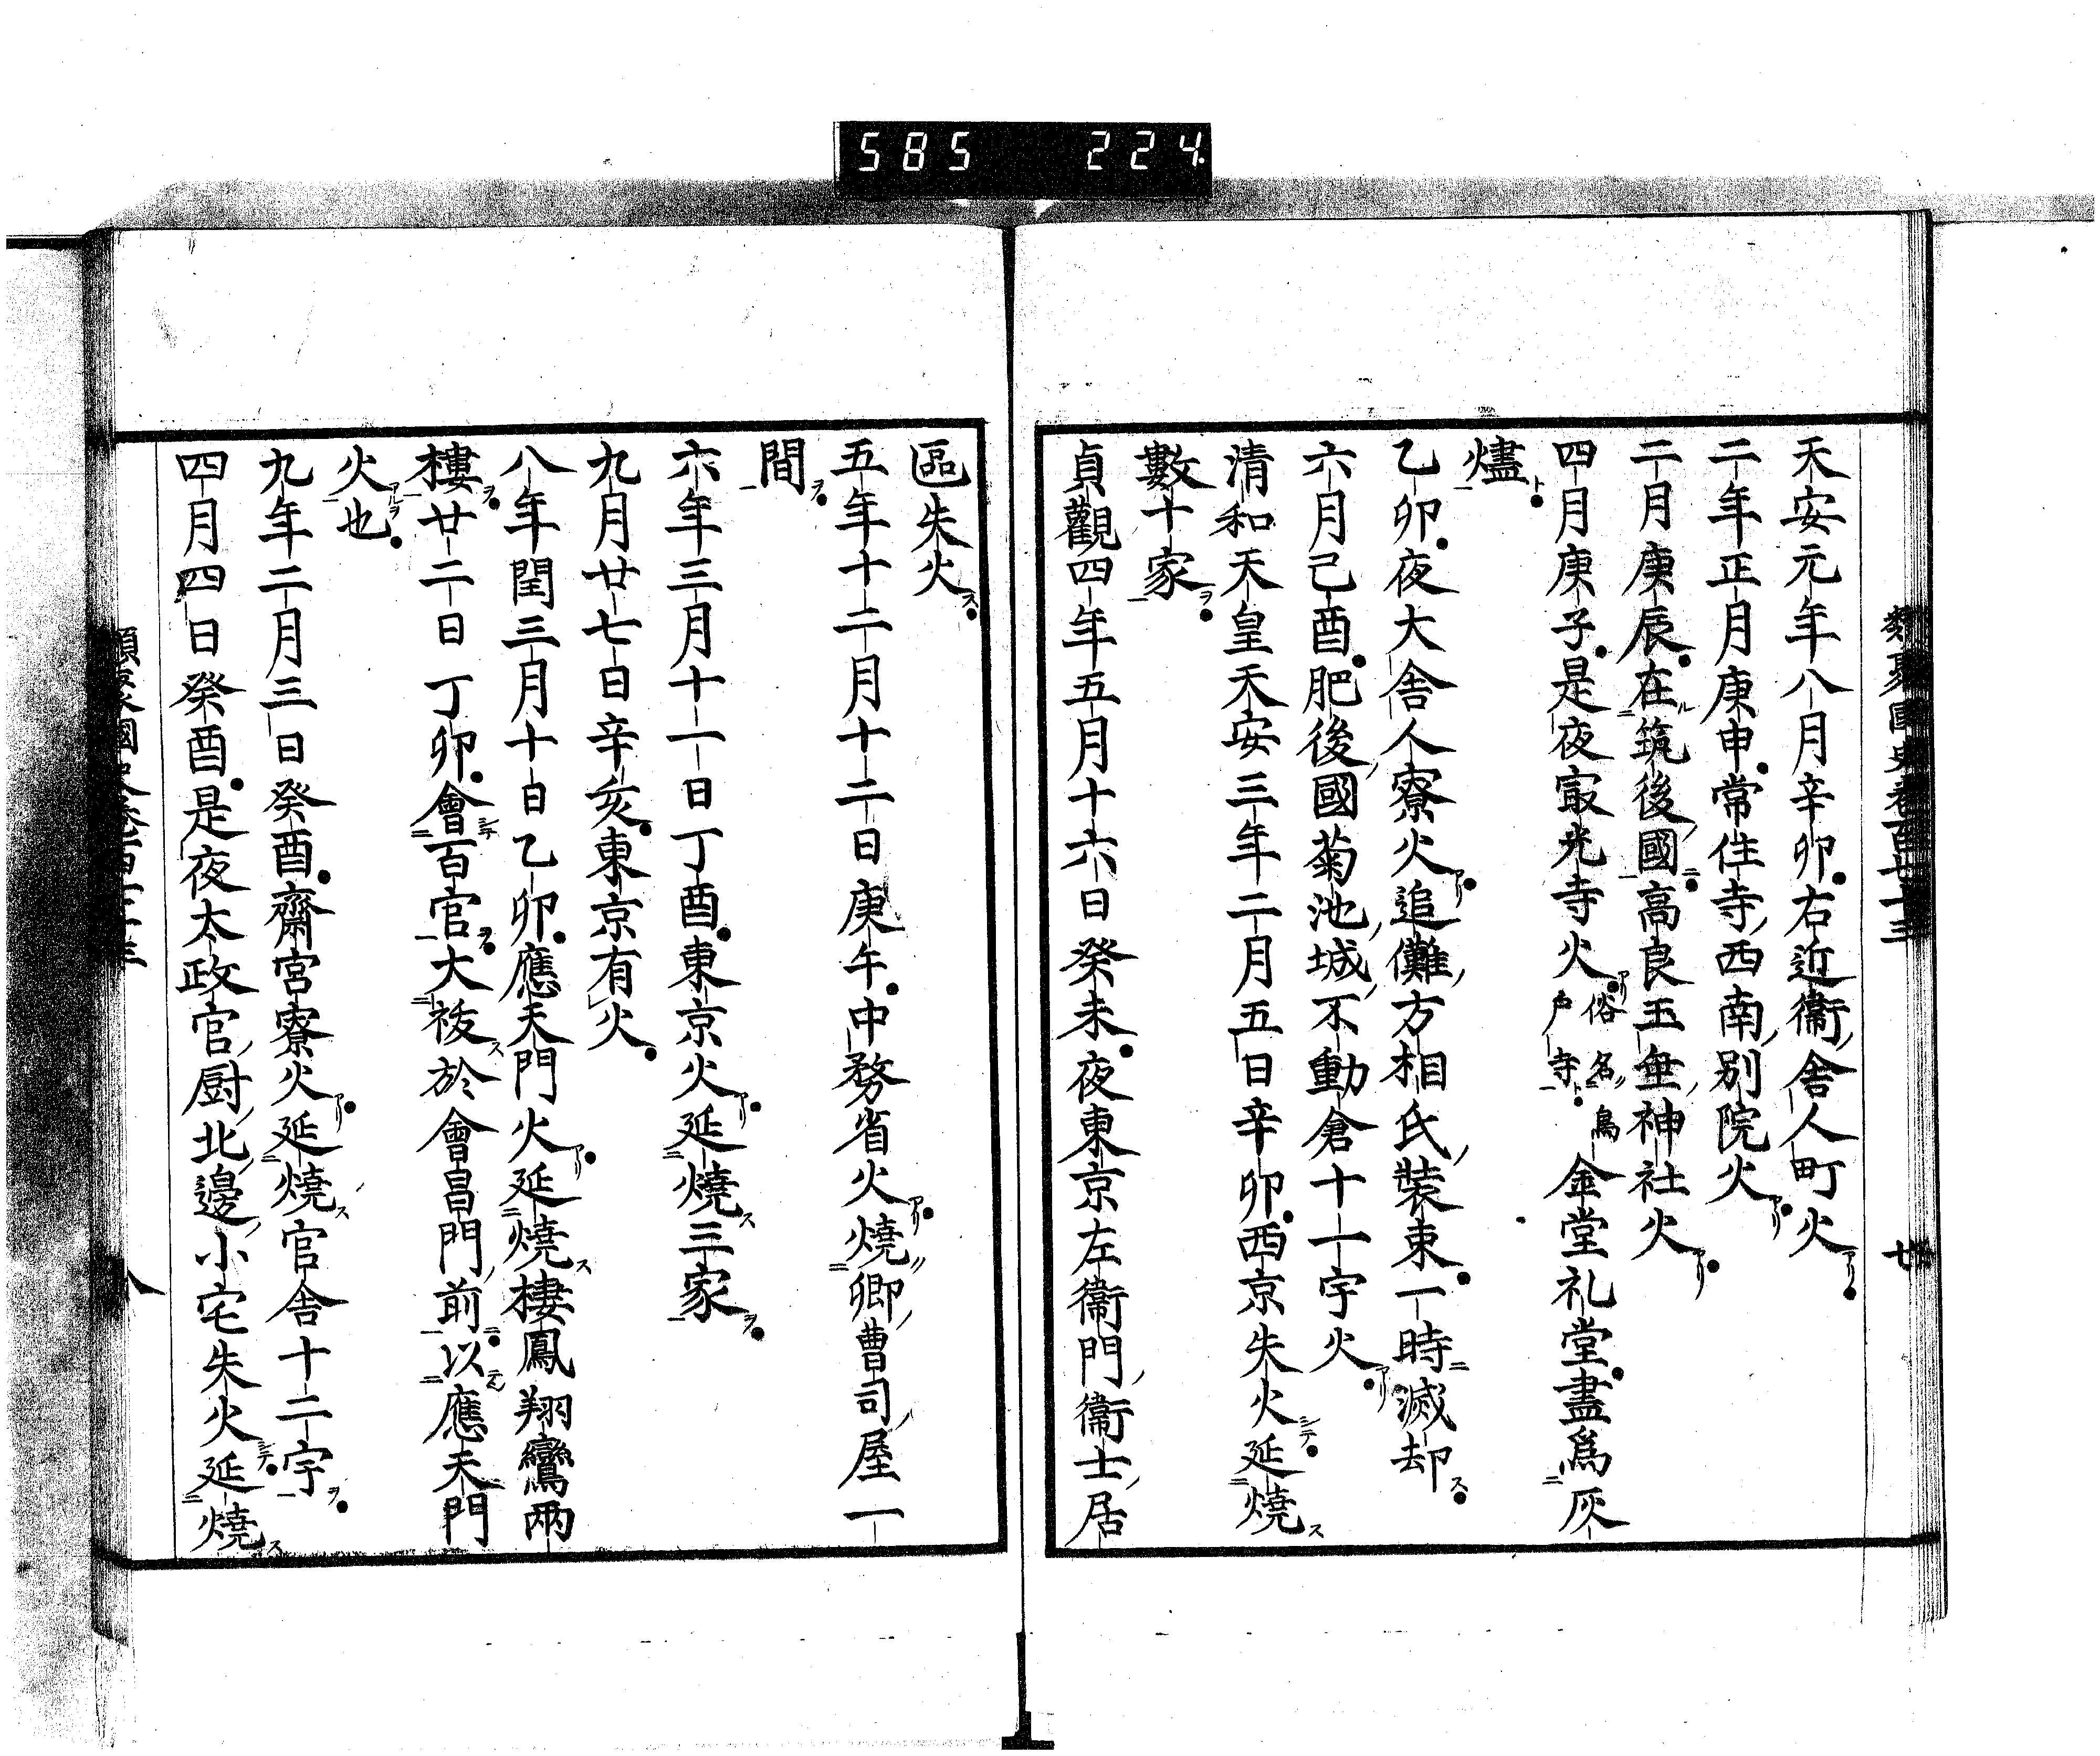 585 224
天安元年八月辛卯右近衞舎人町火
二年正月庚申常住寺西南別院火
二月庚辰在筑後國高良玉垂神社火
四月庚子是夜㝡光寺火俗名鳥戸寺金堂礼堂盡爲灰
燼
乙卯夜大舎人寮火追儺方相氏裝束一時滅却
六月己酉肥後國菊池城不動倉十一宇火
清和天皇天安三年二月五日辛卯西京失火延燒
數十家
貞觀四年五月十六日癸未夜東京左衞門衞士居
區失火
五年十二月十二日庚午中務省火燒卿曹司屋一
間
六年三月十一日丁酉東京火延燒三家
九月廿七日辛亥東京有火
八年閏三月十日乙卯應天門火延燒棲鳳翔鸞兩
樓廿二日丁卯會百官大祓於會昌門前以應天門
火也
九年二月三日癸酉齋宮寮火延燒官舎十二宇
四月四日癸酉是夜太政官厨北邊小宅失火延燒